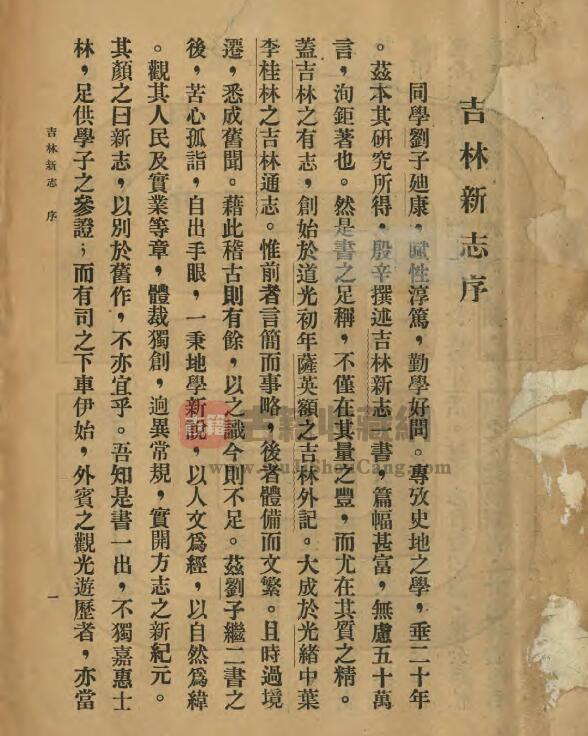 吉林新志序
同學劉子廸康，賦性淳篤，勤學好問。專攷史地之學，垂二十年
。茲本其研究所得，殷辛撰述吉林新志一書，篇幅甚富，無慮五十萬
言，洵鉅著也。然是書之足稱，不僅在其量之豐，而尤在其質之精。
蓋吉林之有志，創始於道光初年薩英額之吉林外記。大成於光緒中葉
李桂林之吉林通志。惟前者言簡而事略，後者體備而文繁。且時過境
遷，悉成舊聞。藉此稽古則有餘，以之識今則不足。茲劉子繼二書之
後，苦心孤詣，自出手眼，一秉地學新說，以人文爲經，以自然爲緯
。觀其人民及實業等章，體裁獨創，逈異常規，實開方志之新紀元。
其顏之曰新志，以別於舊作，不亦宜乎。吾知是書一出，不獨嘉惠士
林，足供學子之參證；而有司之下車伊始，外賓之觀光遊歷者，亦當
吉林新志 序
一
古籍收藏網
www.GuJiShouCang.com